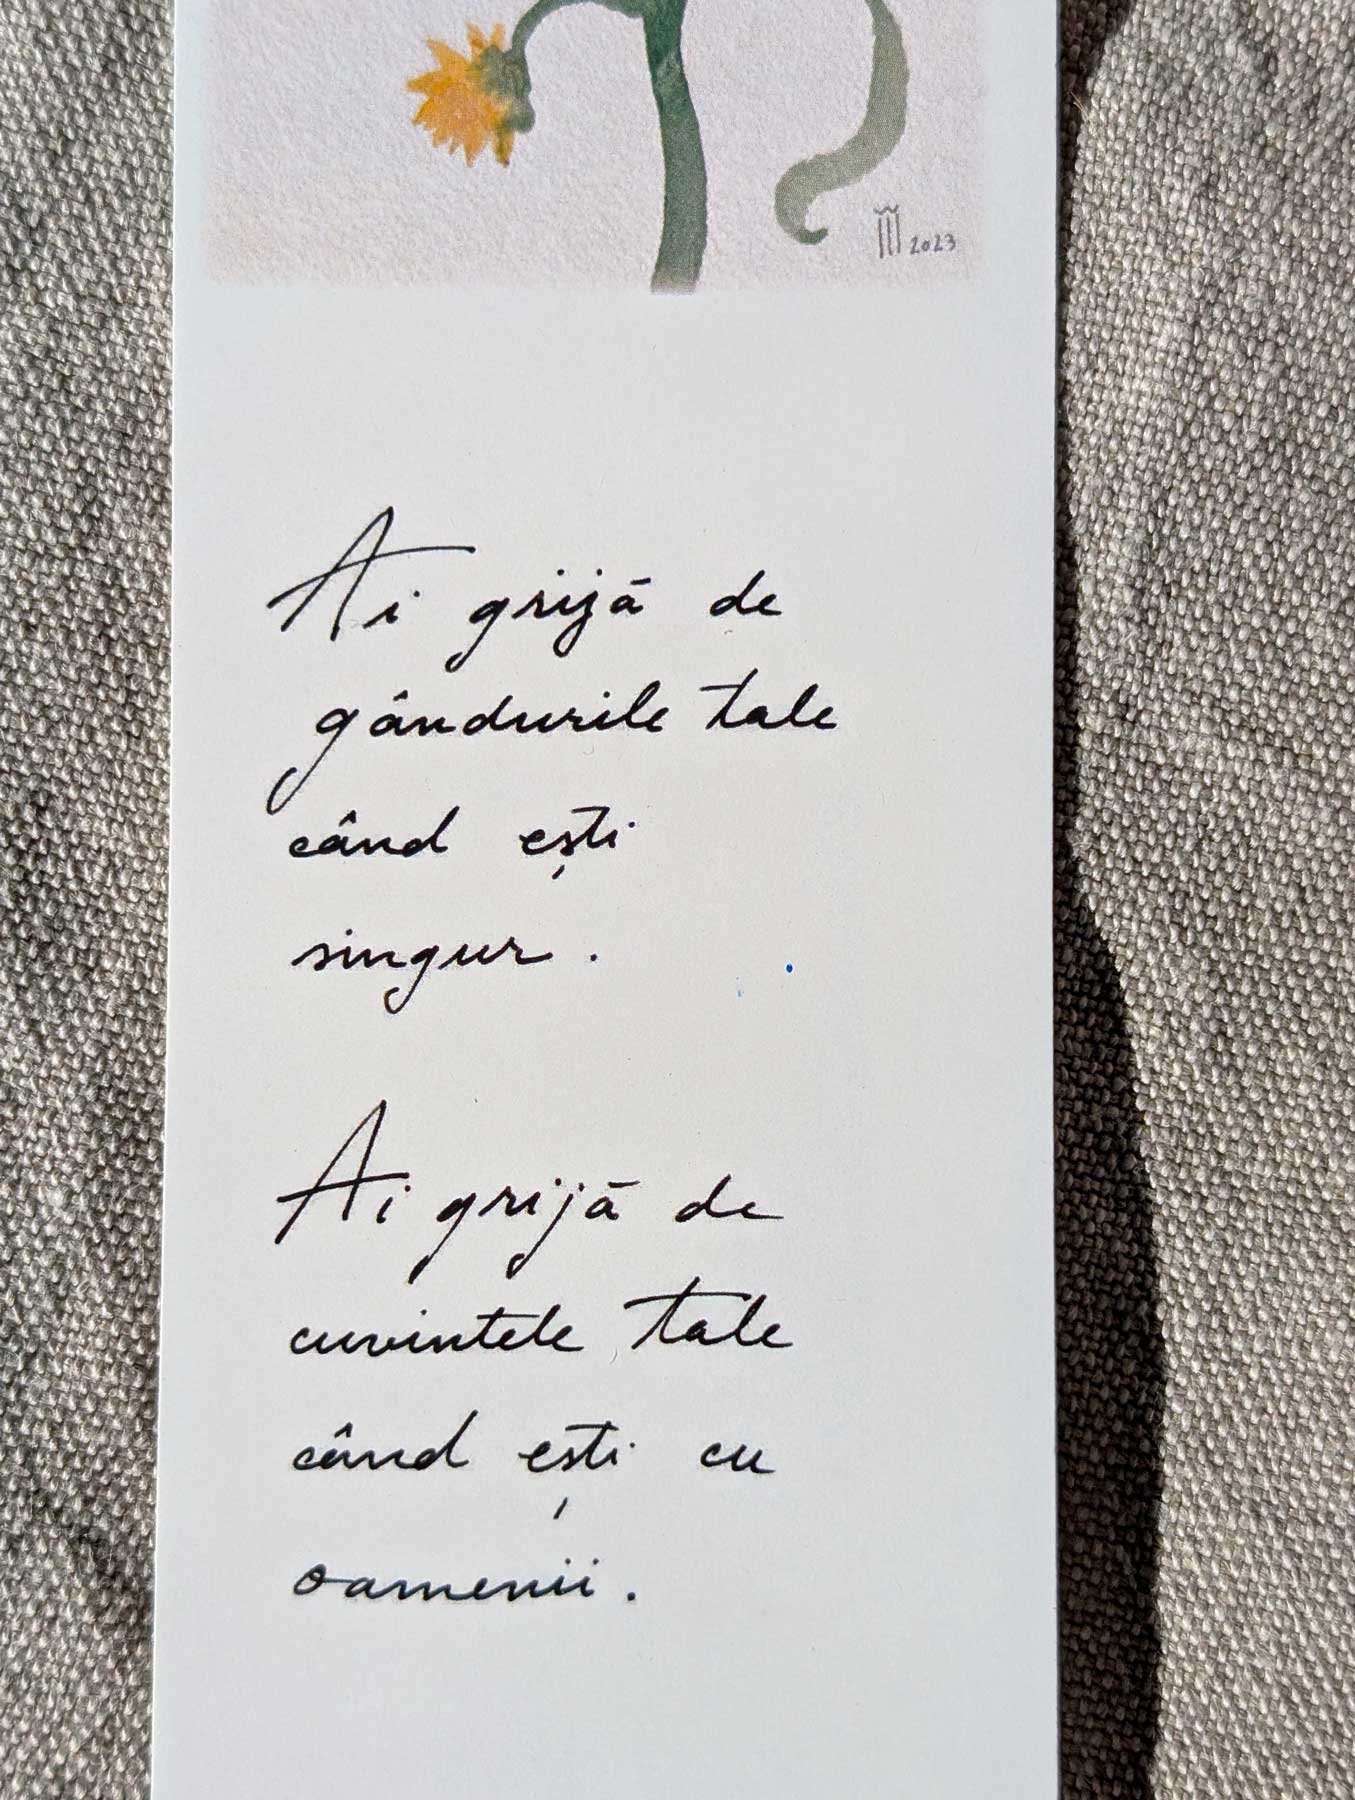 2023
Ai grijă de
gândurile tale
când ești
singur.
Ai grijă de
cuvintele tale
când ești cu
oamenii.